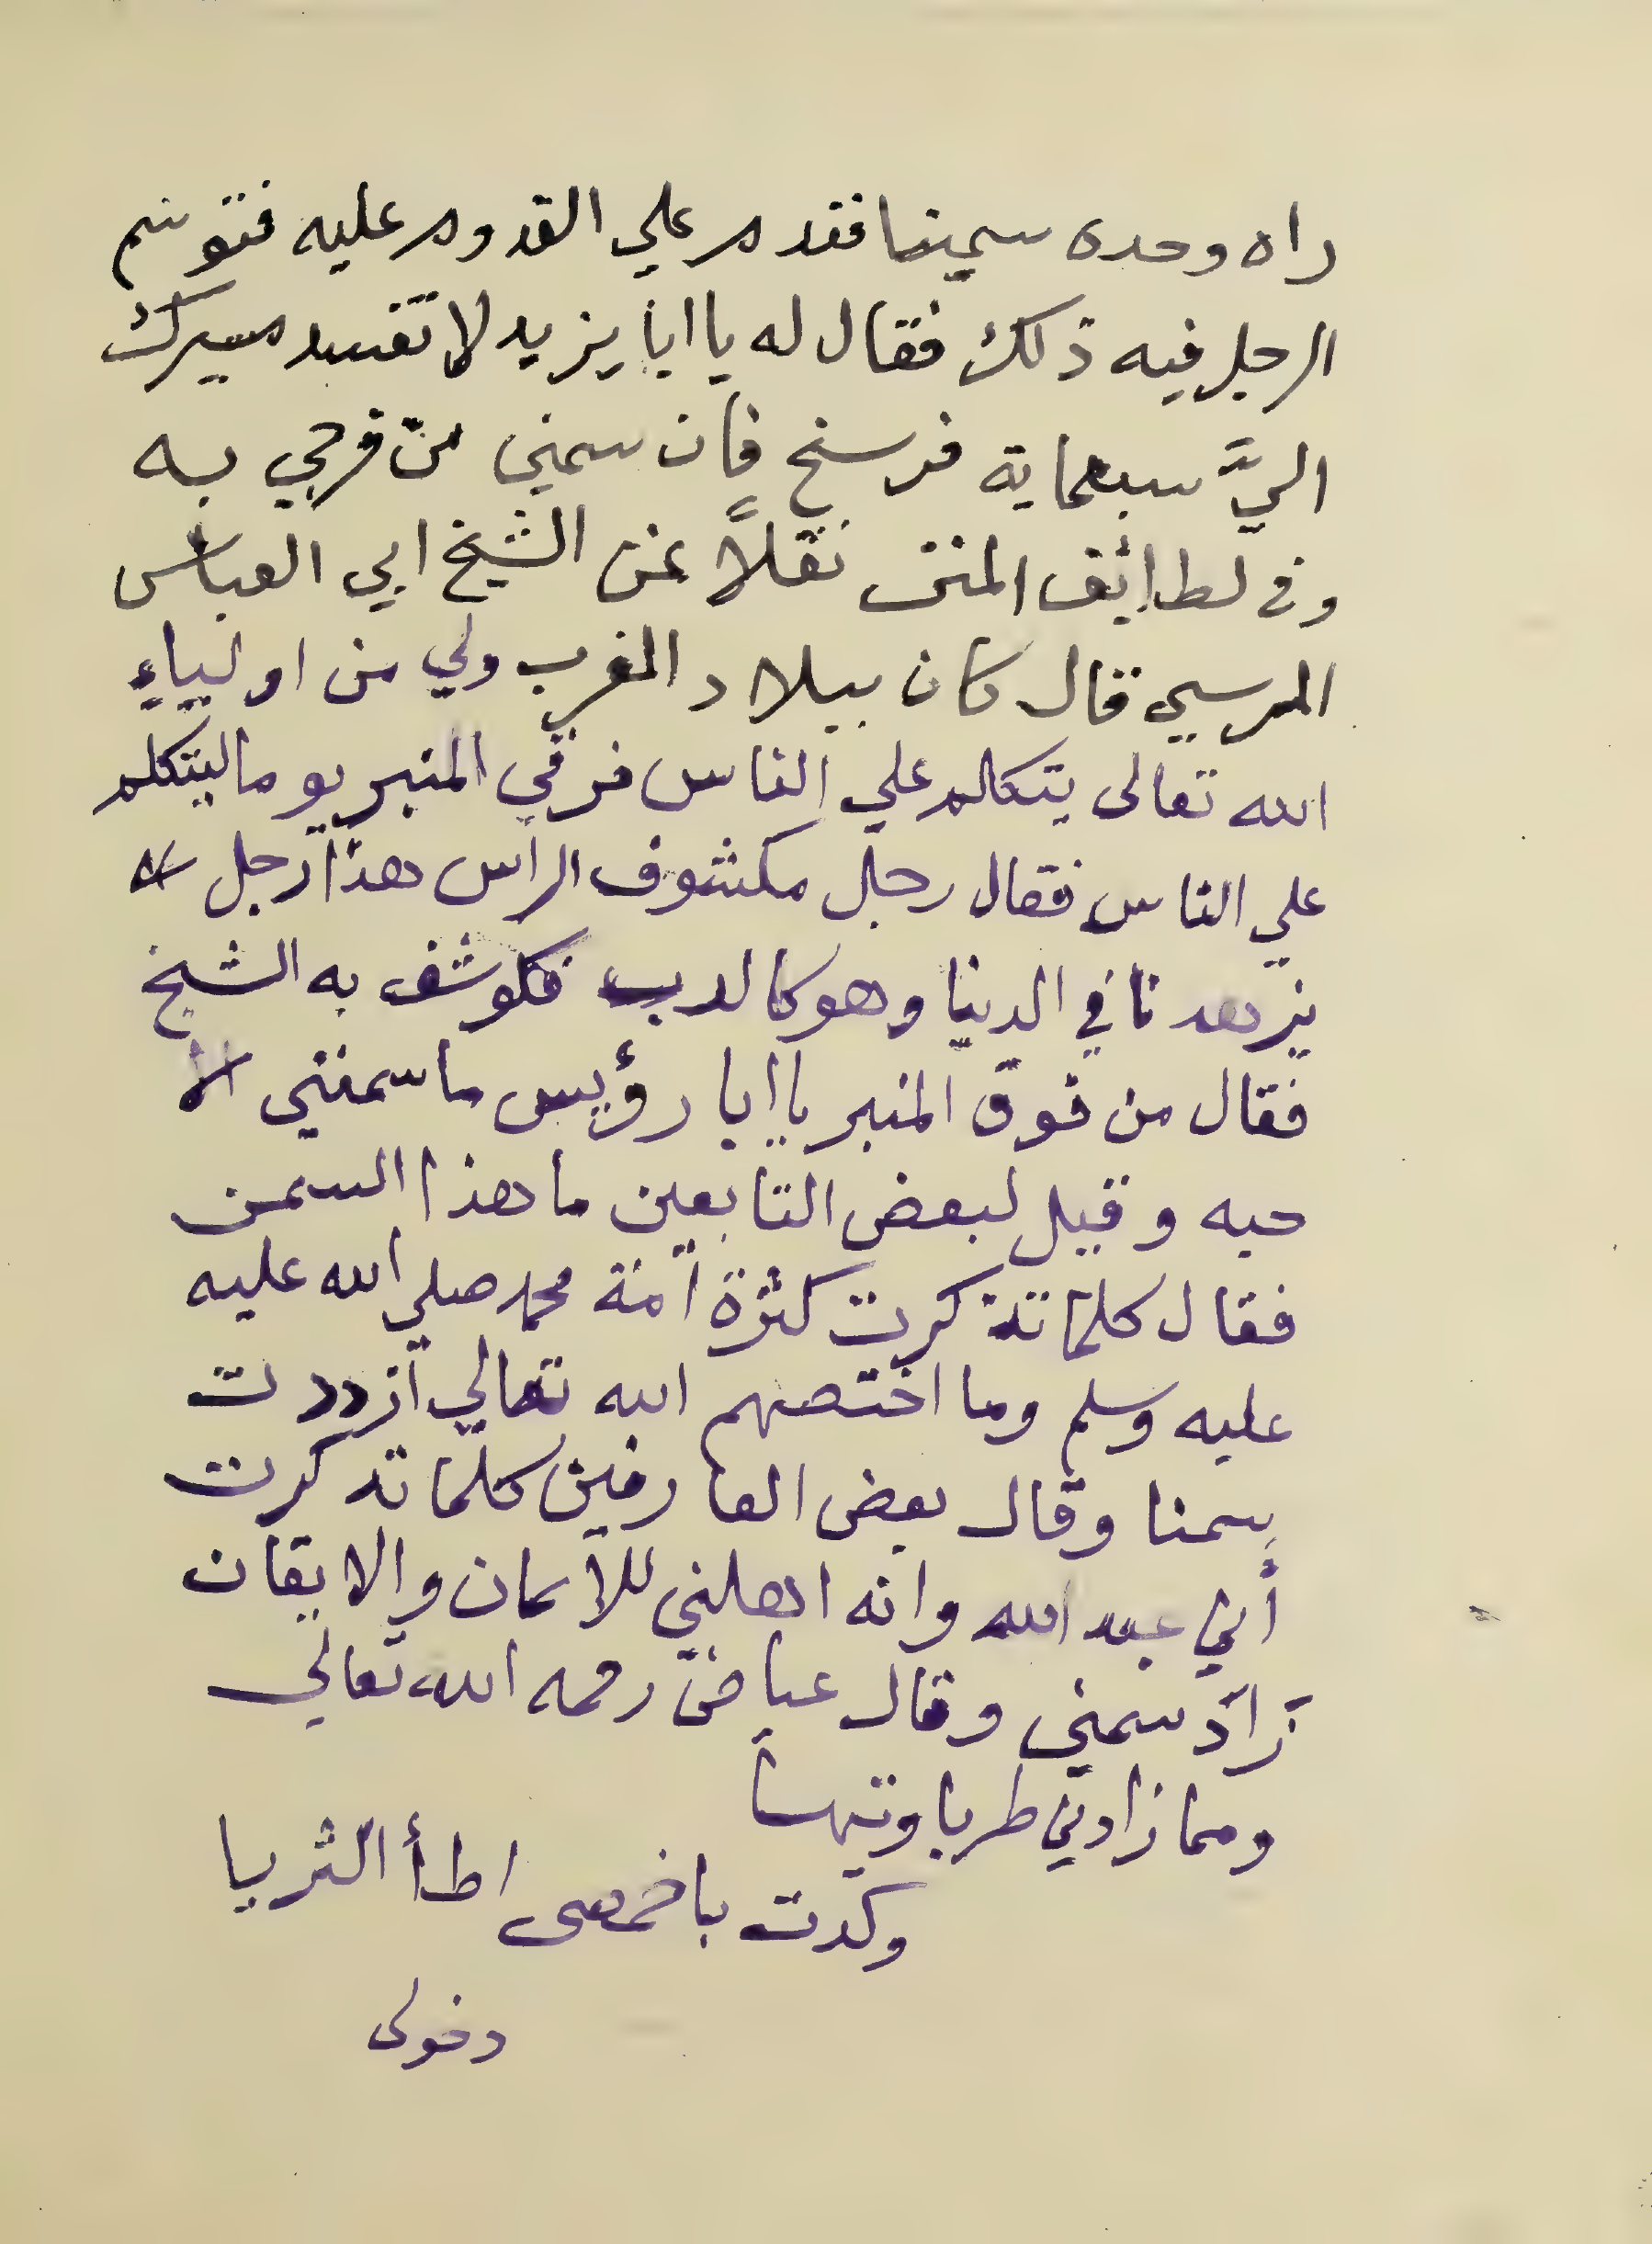 راه وحده سمينا فقدم علي القدوم عليه فتوسم
الرجل فيه ذلك فقال له يا ابا يزيد لا تفسد مسيرك
اليَّ سبعماية فرسخ فإن سمني من فرحي به
وفي لطائف المنن نقلًا عن الشيخ ابي العباس
المرسي قال كان ببلاد المغرب ولي من اولياءِ
الله تعالى يتكلم علي الناس فرقي المنبر يوما ليتكلم
علي الناس فقال رجل مكشوف الراس هذا رجل
يزهدنا في الدنيا وهو كالدب فكوشف به الشيخ
فقال من فوق المنبر يا ابا رؤيس ما سمنني الا
حبه وقيل لبعض التابعين ما هذا السمن
فقال كلما تذكرت كثرة امة محمد صلي الله عليه
عليه وسلم وما اختصهم الله تعالي ازددت
سمنا وقال بعض العارفين كلما تذكرت
أني عبد الله وانه اهلني للايمان والايقان
زاد سمني وقال عياض رحمه الله تعالي
ومما زادني طربا وتيها
وكدت باخمصي اطأ الثريا
دخولى